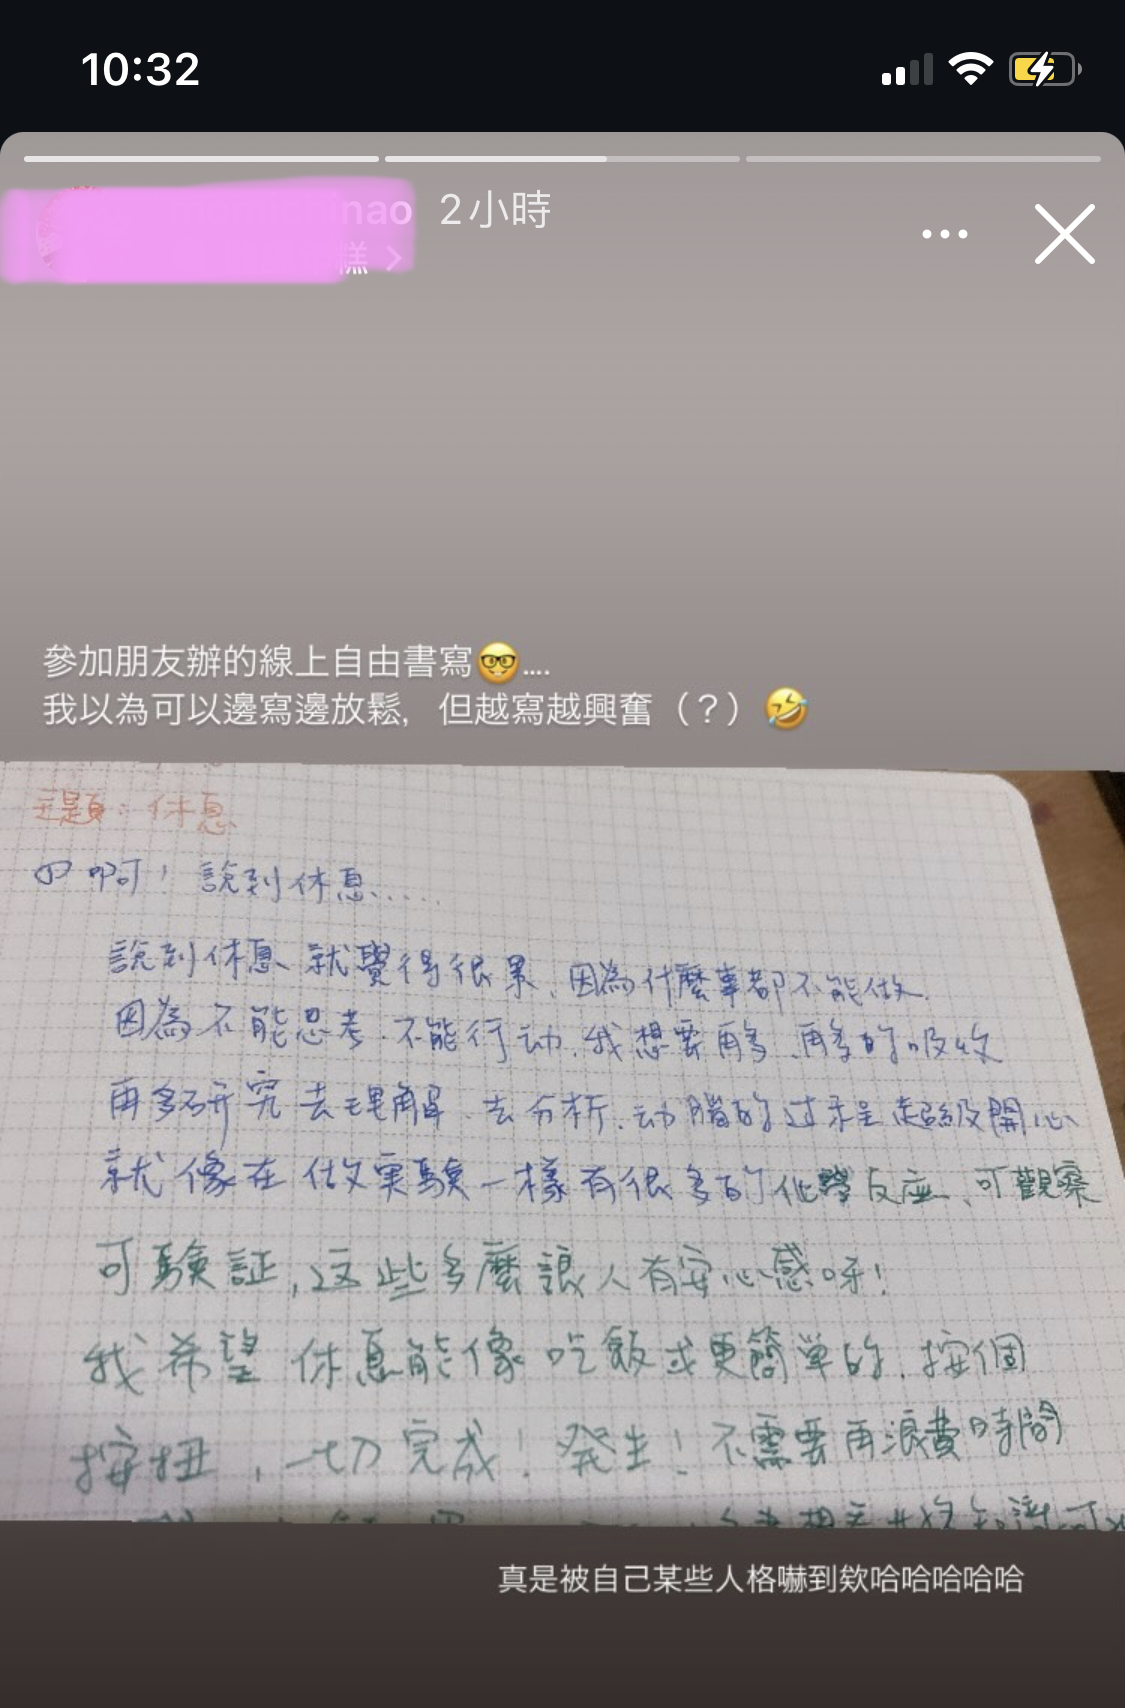 10:32
inao 2小時
糕 >
參加朋友辦的線上自由書寫🤓....
我以為可以邊寫邊放鬆，但越寫越興奮（？）🤣
主題：休息
啊！說到休息.....
說到休息就覺得很累、因為什麼事都不能做、
因為不能思考、不能行动、我想要再多、再多的吸收
再多研究去理解、去分析、动腦的过程超級開心
就像在做实驗一樣有很多的化學反应、可觀察
可驗証，这些多麼讓人有安心感呀！
我希望休息能像吃飯或更簡単的、按個
按扭，一切完成！発生！不需要再浪費時間
真是被自己某些人格嚇到欸哈哈哈哈哈